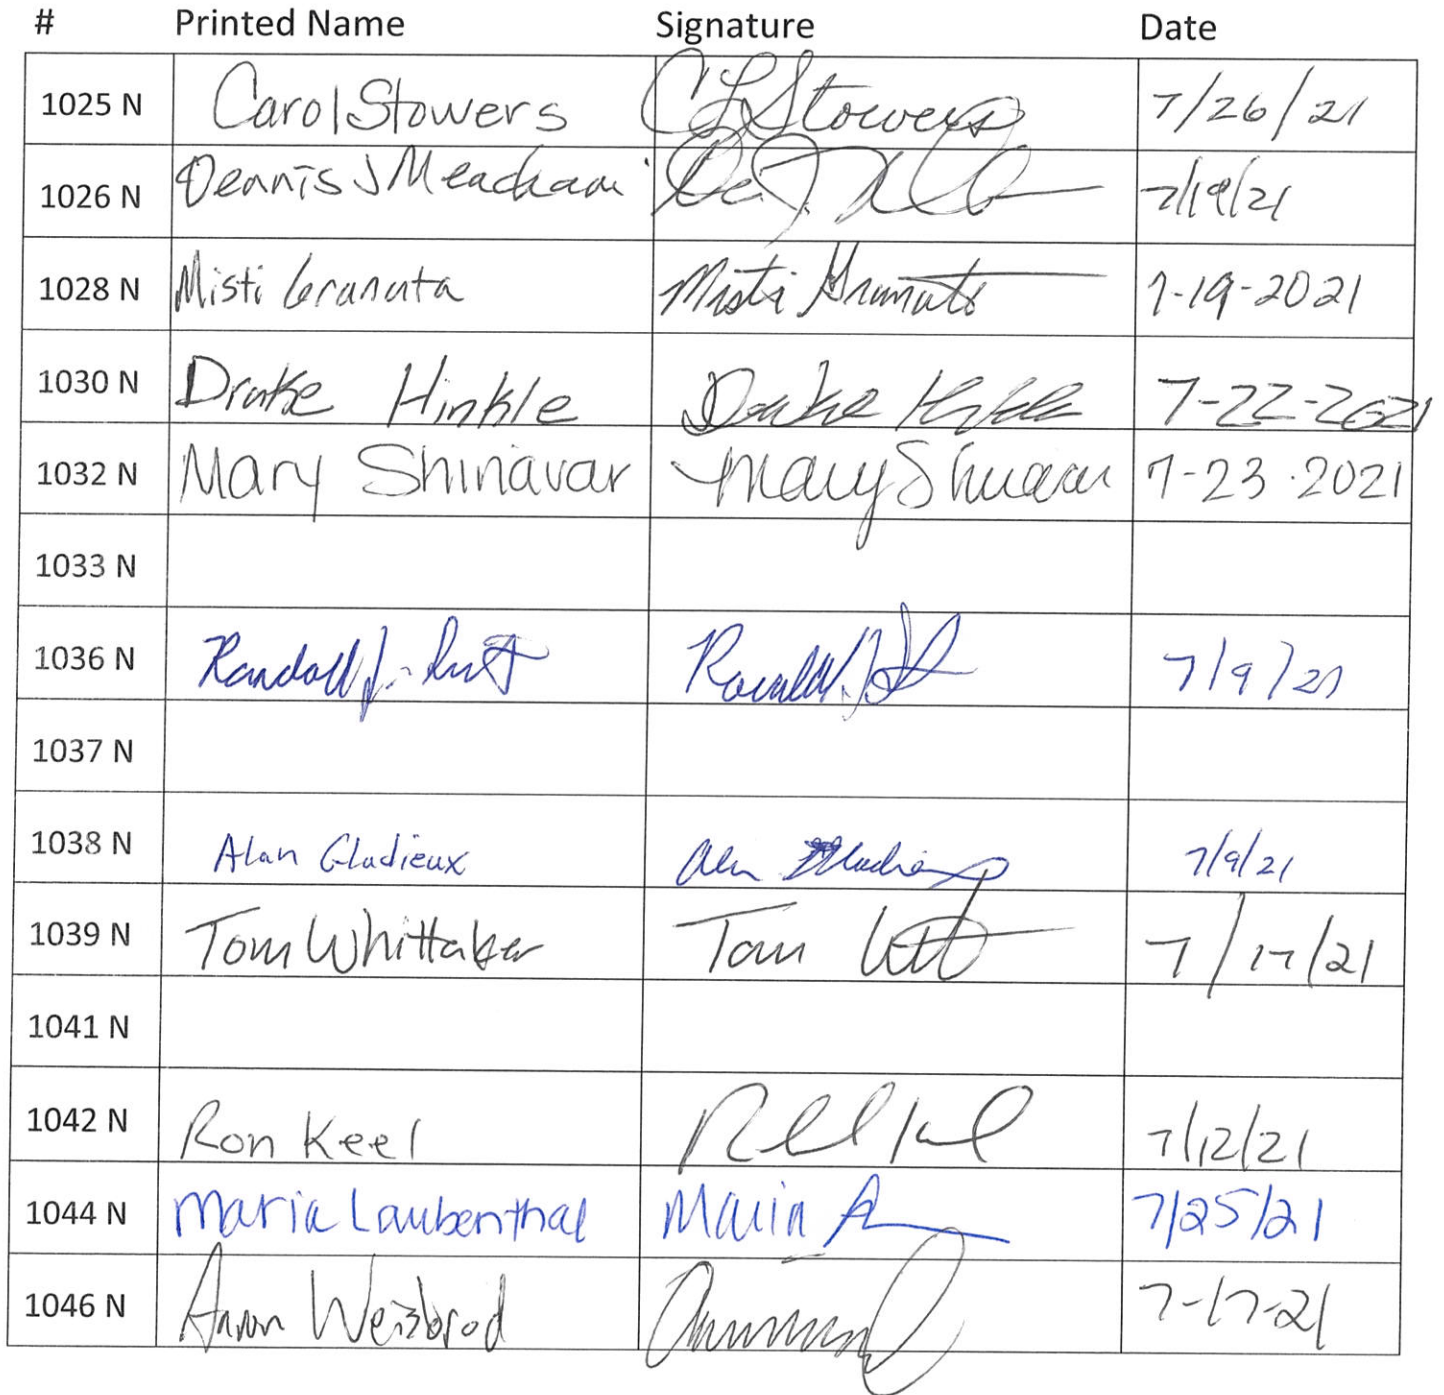 # Printed Name Signature Date
1025 N Carol Stowers C L Stowers 7/26/21
1026 N Dennis J Meacham 7/19/21
1028 N Misti Granata Misti Granata 7-19-2021
1030 N Drake Hinkle Drake Hinkle 7-22-2021
1032 N Mary Shinavar Mary Shinavar 7-23-2021
1033 N
1036 N Randall J. 7/9/21
1037 N
1038 N Alan Gladieux Alan Gladieux 7/9/21
1039 N Tom Whittaker Tom 7/17/21
1041 N
1042 N Ron Keel 7/12/21
1044 N Maria Laubenthal Maria 7/25/21
1046 N Aaron Weisbrod 7-17-21